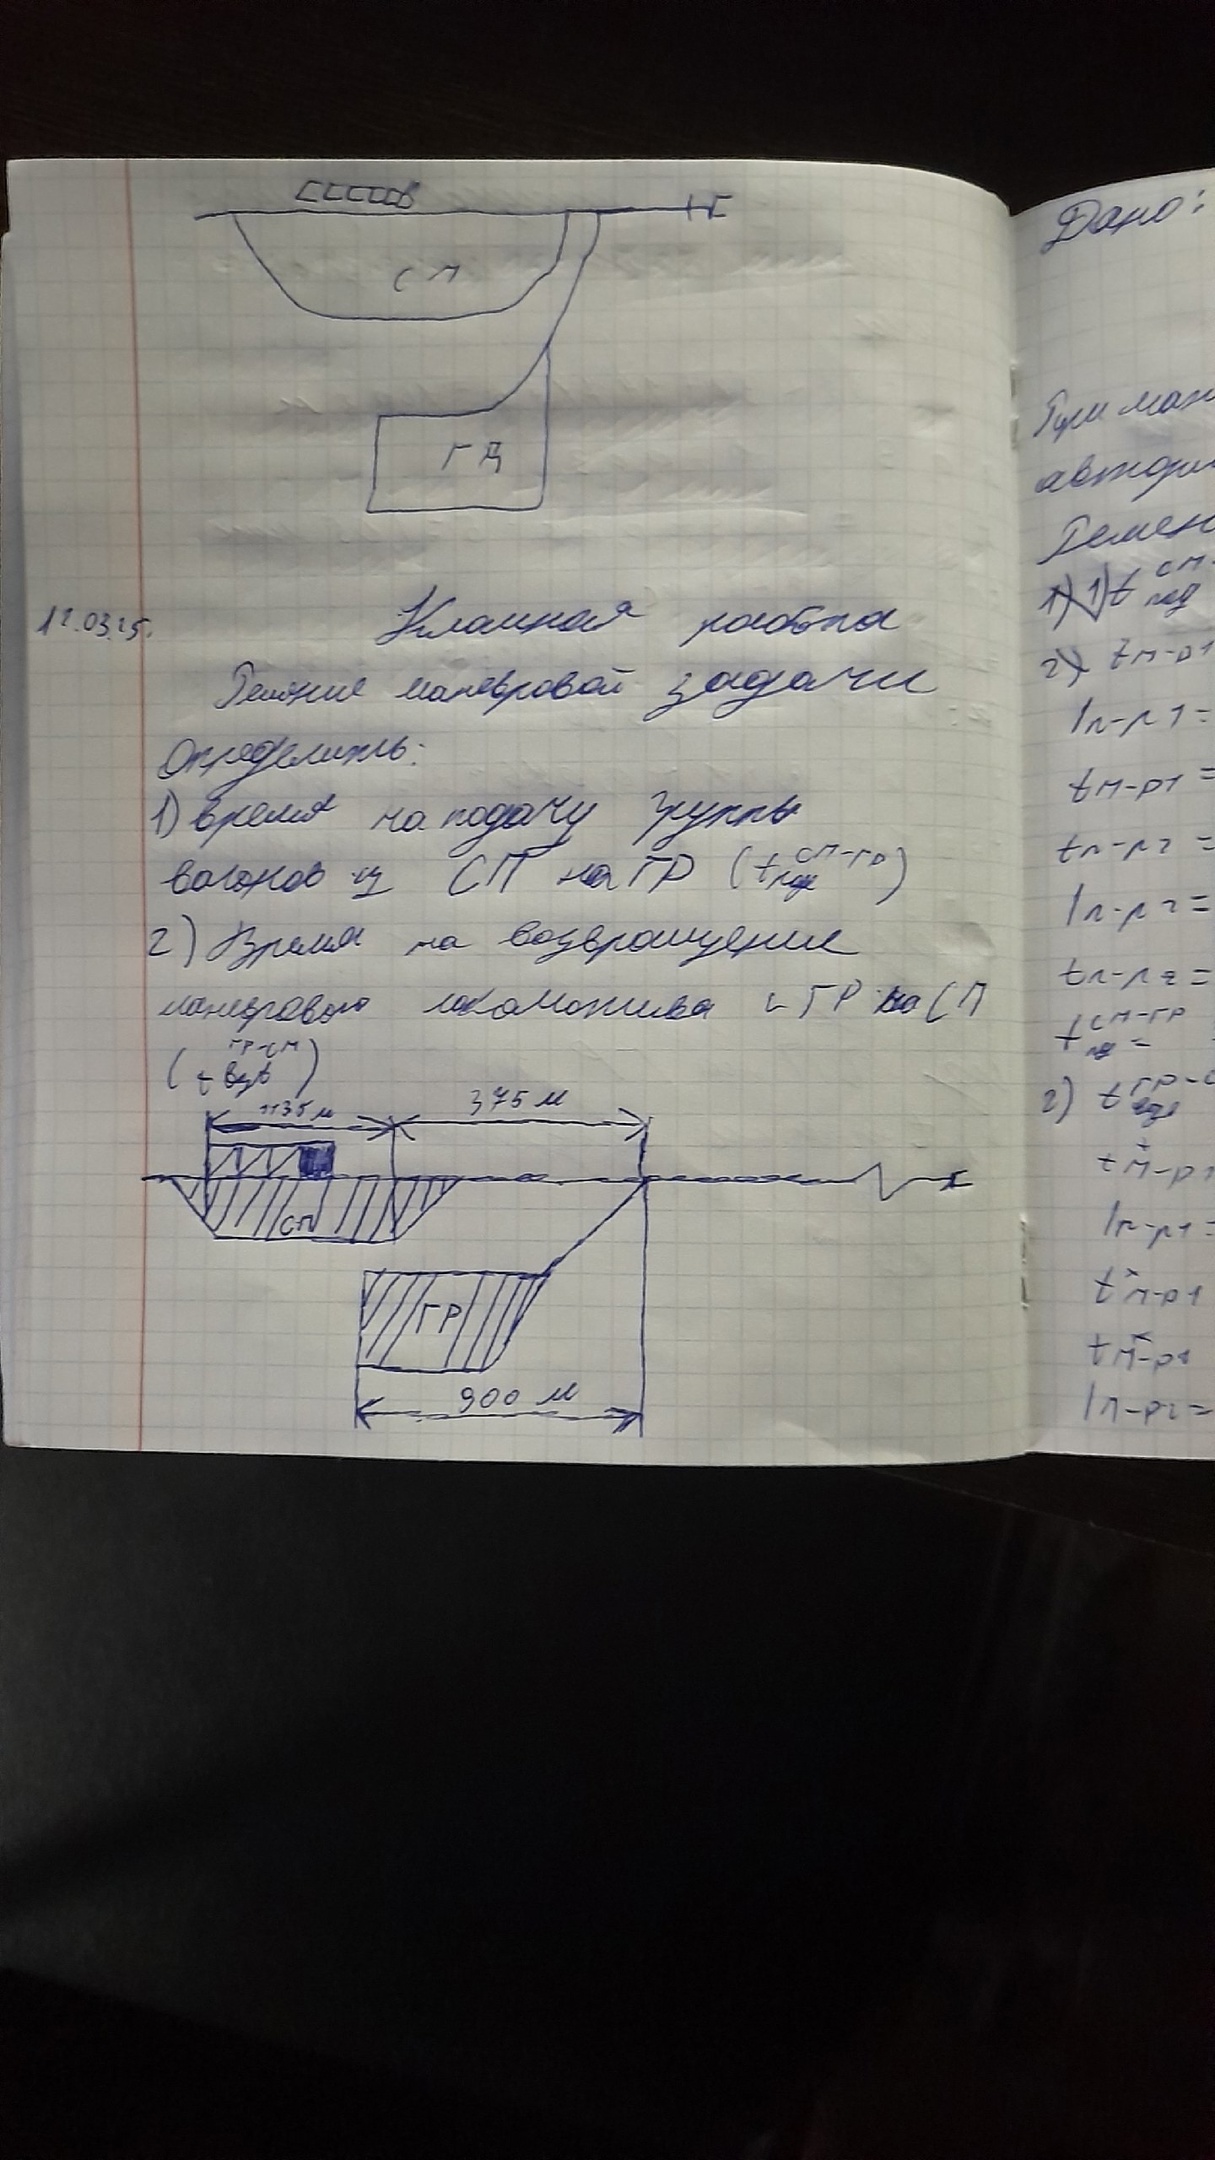 СП
ГД
12.03.25.
Классная работа
Решение маневровой задачи
Определить:
1) время на подачу группы
вагонов из СП на ГР (t под СП-ГР)
2) Время на возвращение
маневрового локомотива с ГР на СП
(t взв ГР-СП)
1135 м
375 м
СП
ГР
900 м
Дано:
При ман
автори
Решен
1) t СП-
под
2) t п-р1
lп-р1=
tп-р1=
tп-р2=
lп-р2=
tп-р2=
t СП-ГР =
2) t ГР-С
t п-р1
lп-р1=
t п-р1
t п-р1
lп-р2=